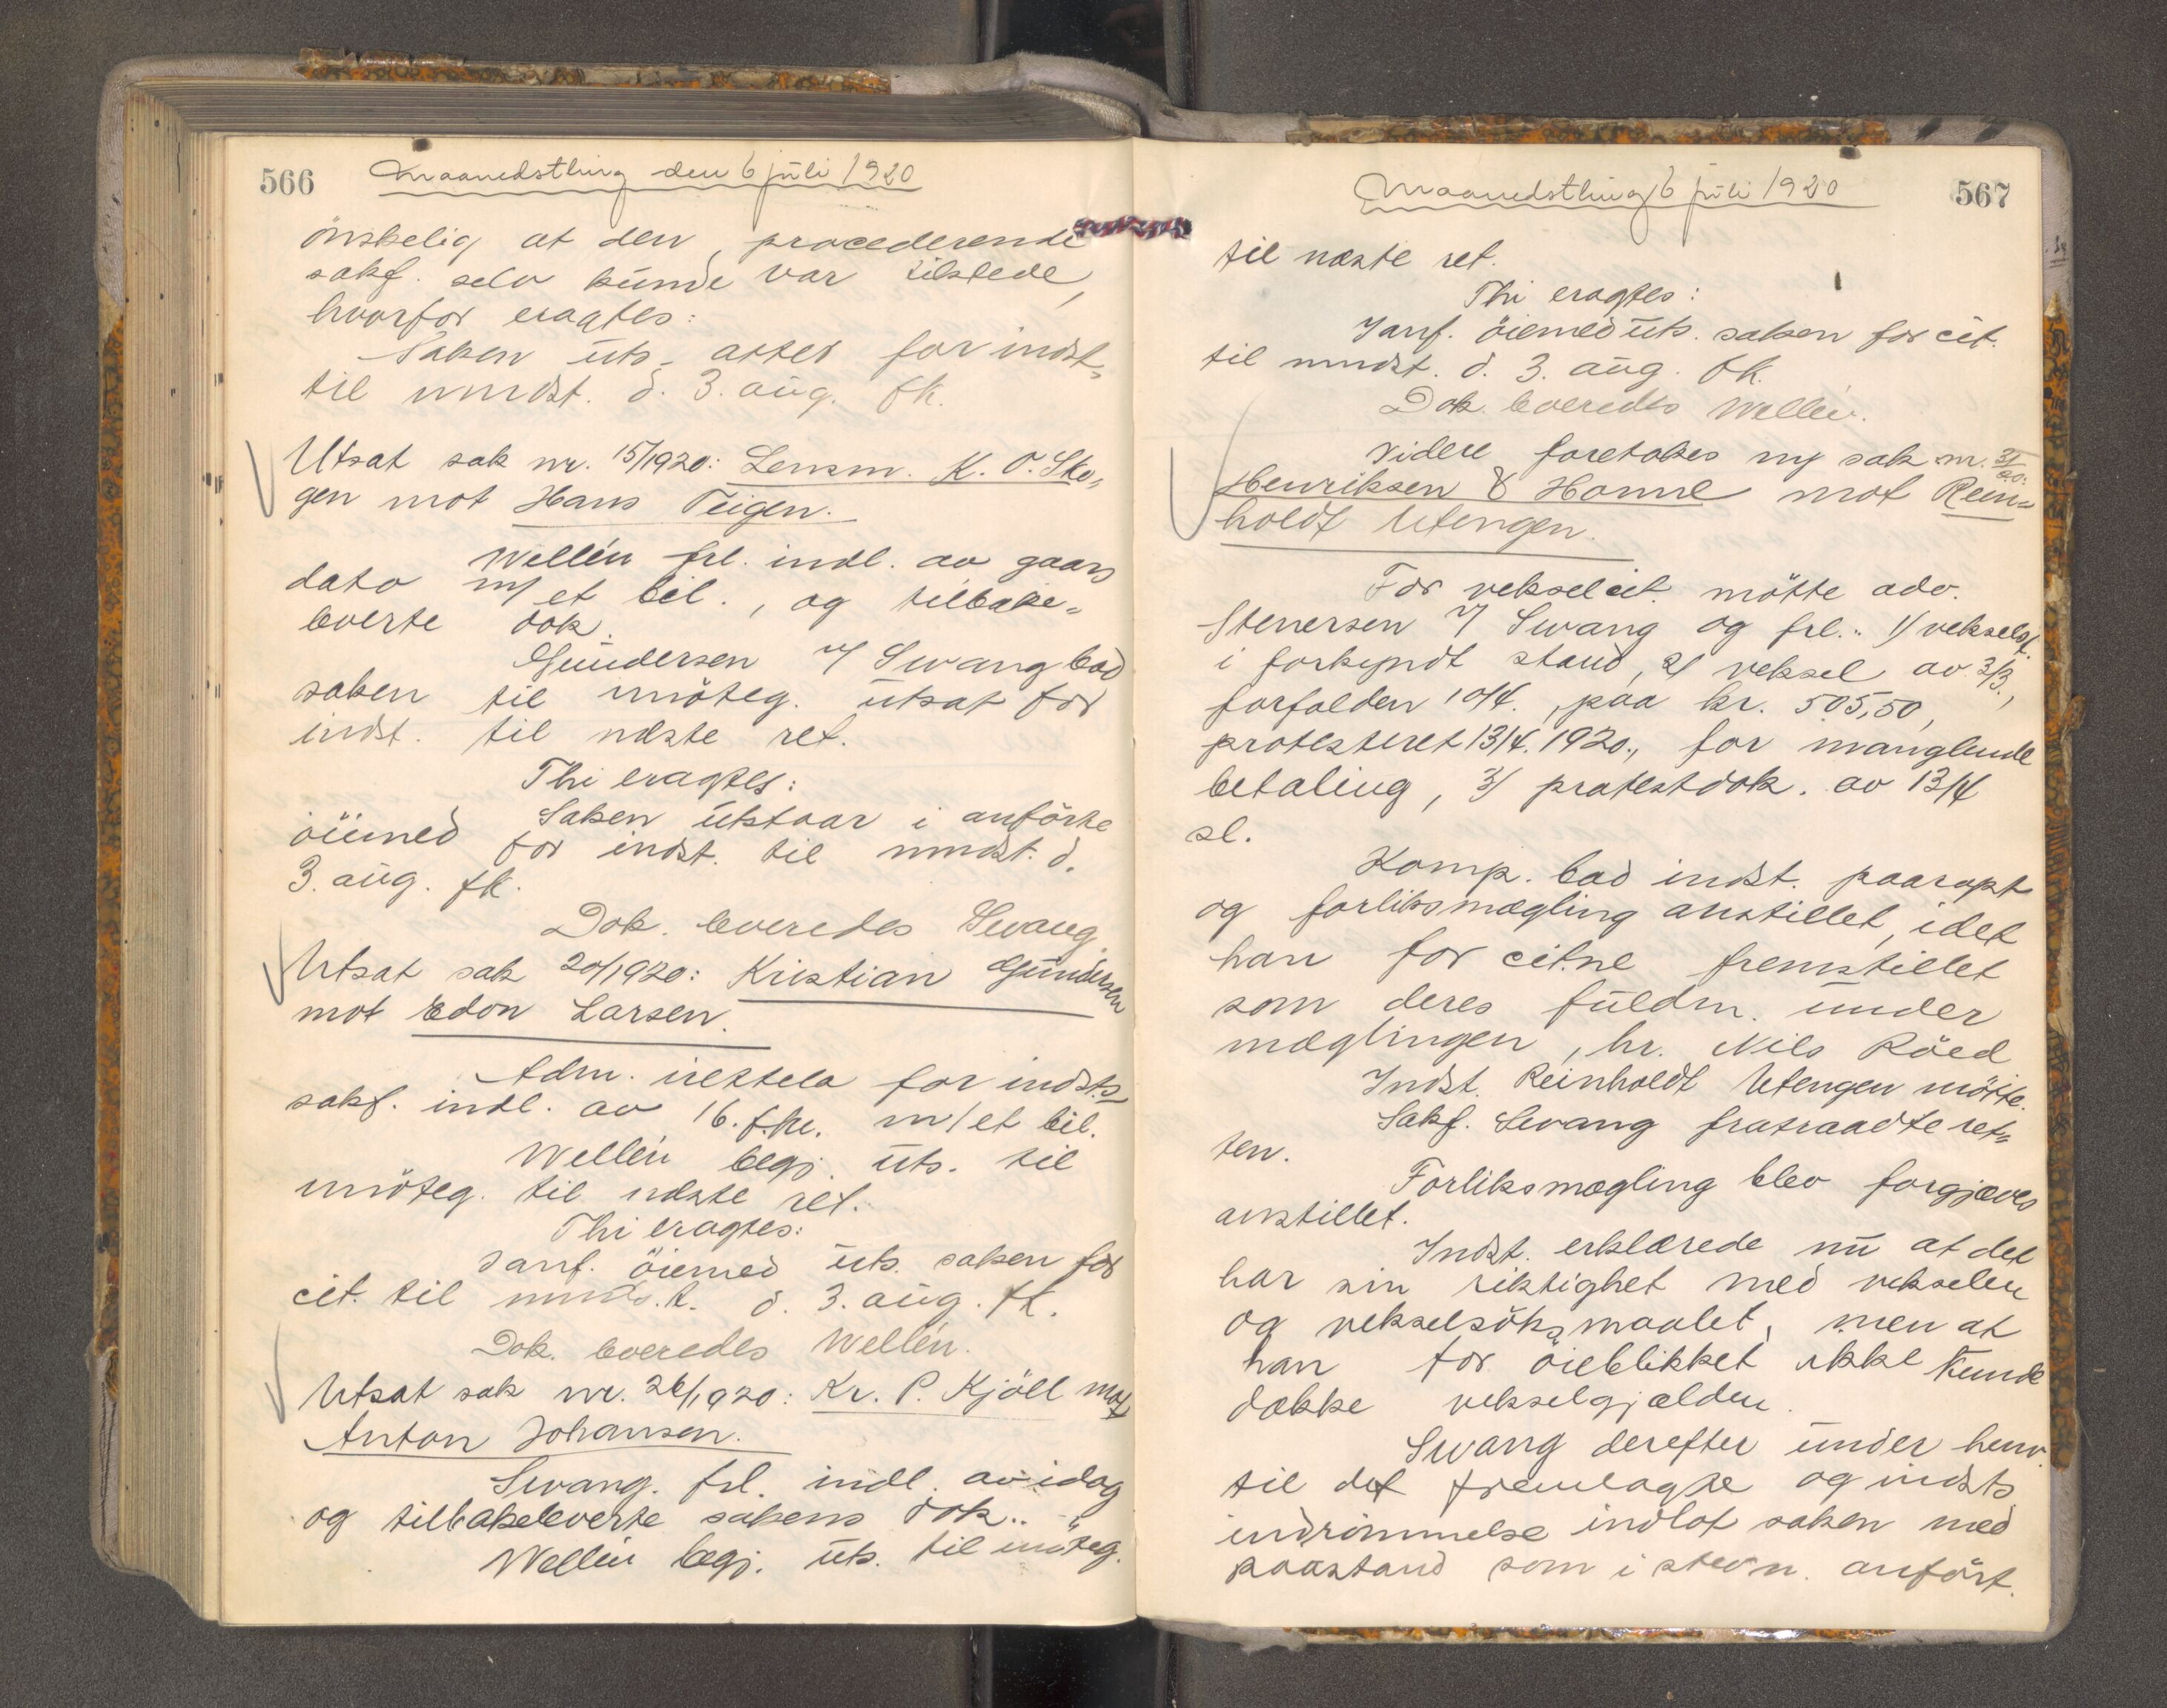 566
Maanedsthing den 6 juli 1920
önskelig at den procederende
sakf. selv kunde var tilstede,
hvorfor eragtes:
Saken uts. atter for indst.
til mndst. d. 3. aug. fk.
Utsat sak nr. 15/1920: Lensm. K. O. Sko-
gen mot Hans Teigen.
Wellén frl. indl. av gaars
dato m/ et bil., og tilbake-
leverte dok.
Gundersen v/ Swang bad
saken til imöteg. utsat for
indst. til næste ret.
Thi eragtes:
Saken utstaar i anförte
öiemed for indst. til mndst. d.
3. aug. fk.
Dok. leveredes Swang.
Utsat sak 20/1920: Kristian Gundersen
mot Edon Larsen.
Adm. irettela for indsts
sakf. indl. av 16. f.m. m/ et bil.
Wellén begj. uts. til
imöteg. til næste ret.
Thi eragtes:
I anf. öiemed uts. saken for
cit. til d. 3. aug. fk.
Dok. leveredes Wellén.
Utsat sak nr. 26/1920: Kr. P. Kjöll mot
Anton Johansen.
Swang. frl. indl. av idag
og tilbakeleverte sakens dok..
Wellén begj. uts. til imöteg.
Maanedsthing 6 juli 1920
567
til næste ret.
Thi eragtes:
I anf. öiemed uts. saken for cit.
til mndst. d. 3. aug. fk.
Dok. leveredes Wellén.
Videre foretokes ny sak nr. 31/20:
Henriksen & Honne mot Rein-
holdt Utengen.
For vekselcit. mötte adv.
Stenersen v/ Swang og frl.: 1/ vekselst.
i forkyndt stand, 2/ veksel av 3/3.,
forfalden 10/4., paa kr. 505,50,
protesteret 13/4. 1920., for manglende
betaling, 3/ protestdok. av 13/4
sl.
Komp. bad indst. paaropt
og forliksmægling anstillet, idet
han for cit.ne fremstillet
som deres fuldm. under
mæglingen, hr. Nils Röed
Indst. Reinholdt Utengen mötte.
Sakf. Swang fratraadte ret-
ten.
Forliksmægling blev forgjæves
anstillet.
Indst. erklærede nu at det
har sin riktighet med vekselen
og vekselsöksmaalet, men at
han for öieblikket ikke kunde
dække vekselgjælden.
Swang derefter under henv.
til det fremlagte og indsts
indrömmelse indlot saken med
paastand som i stevn. anfört.